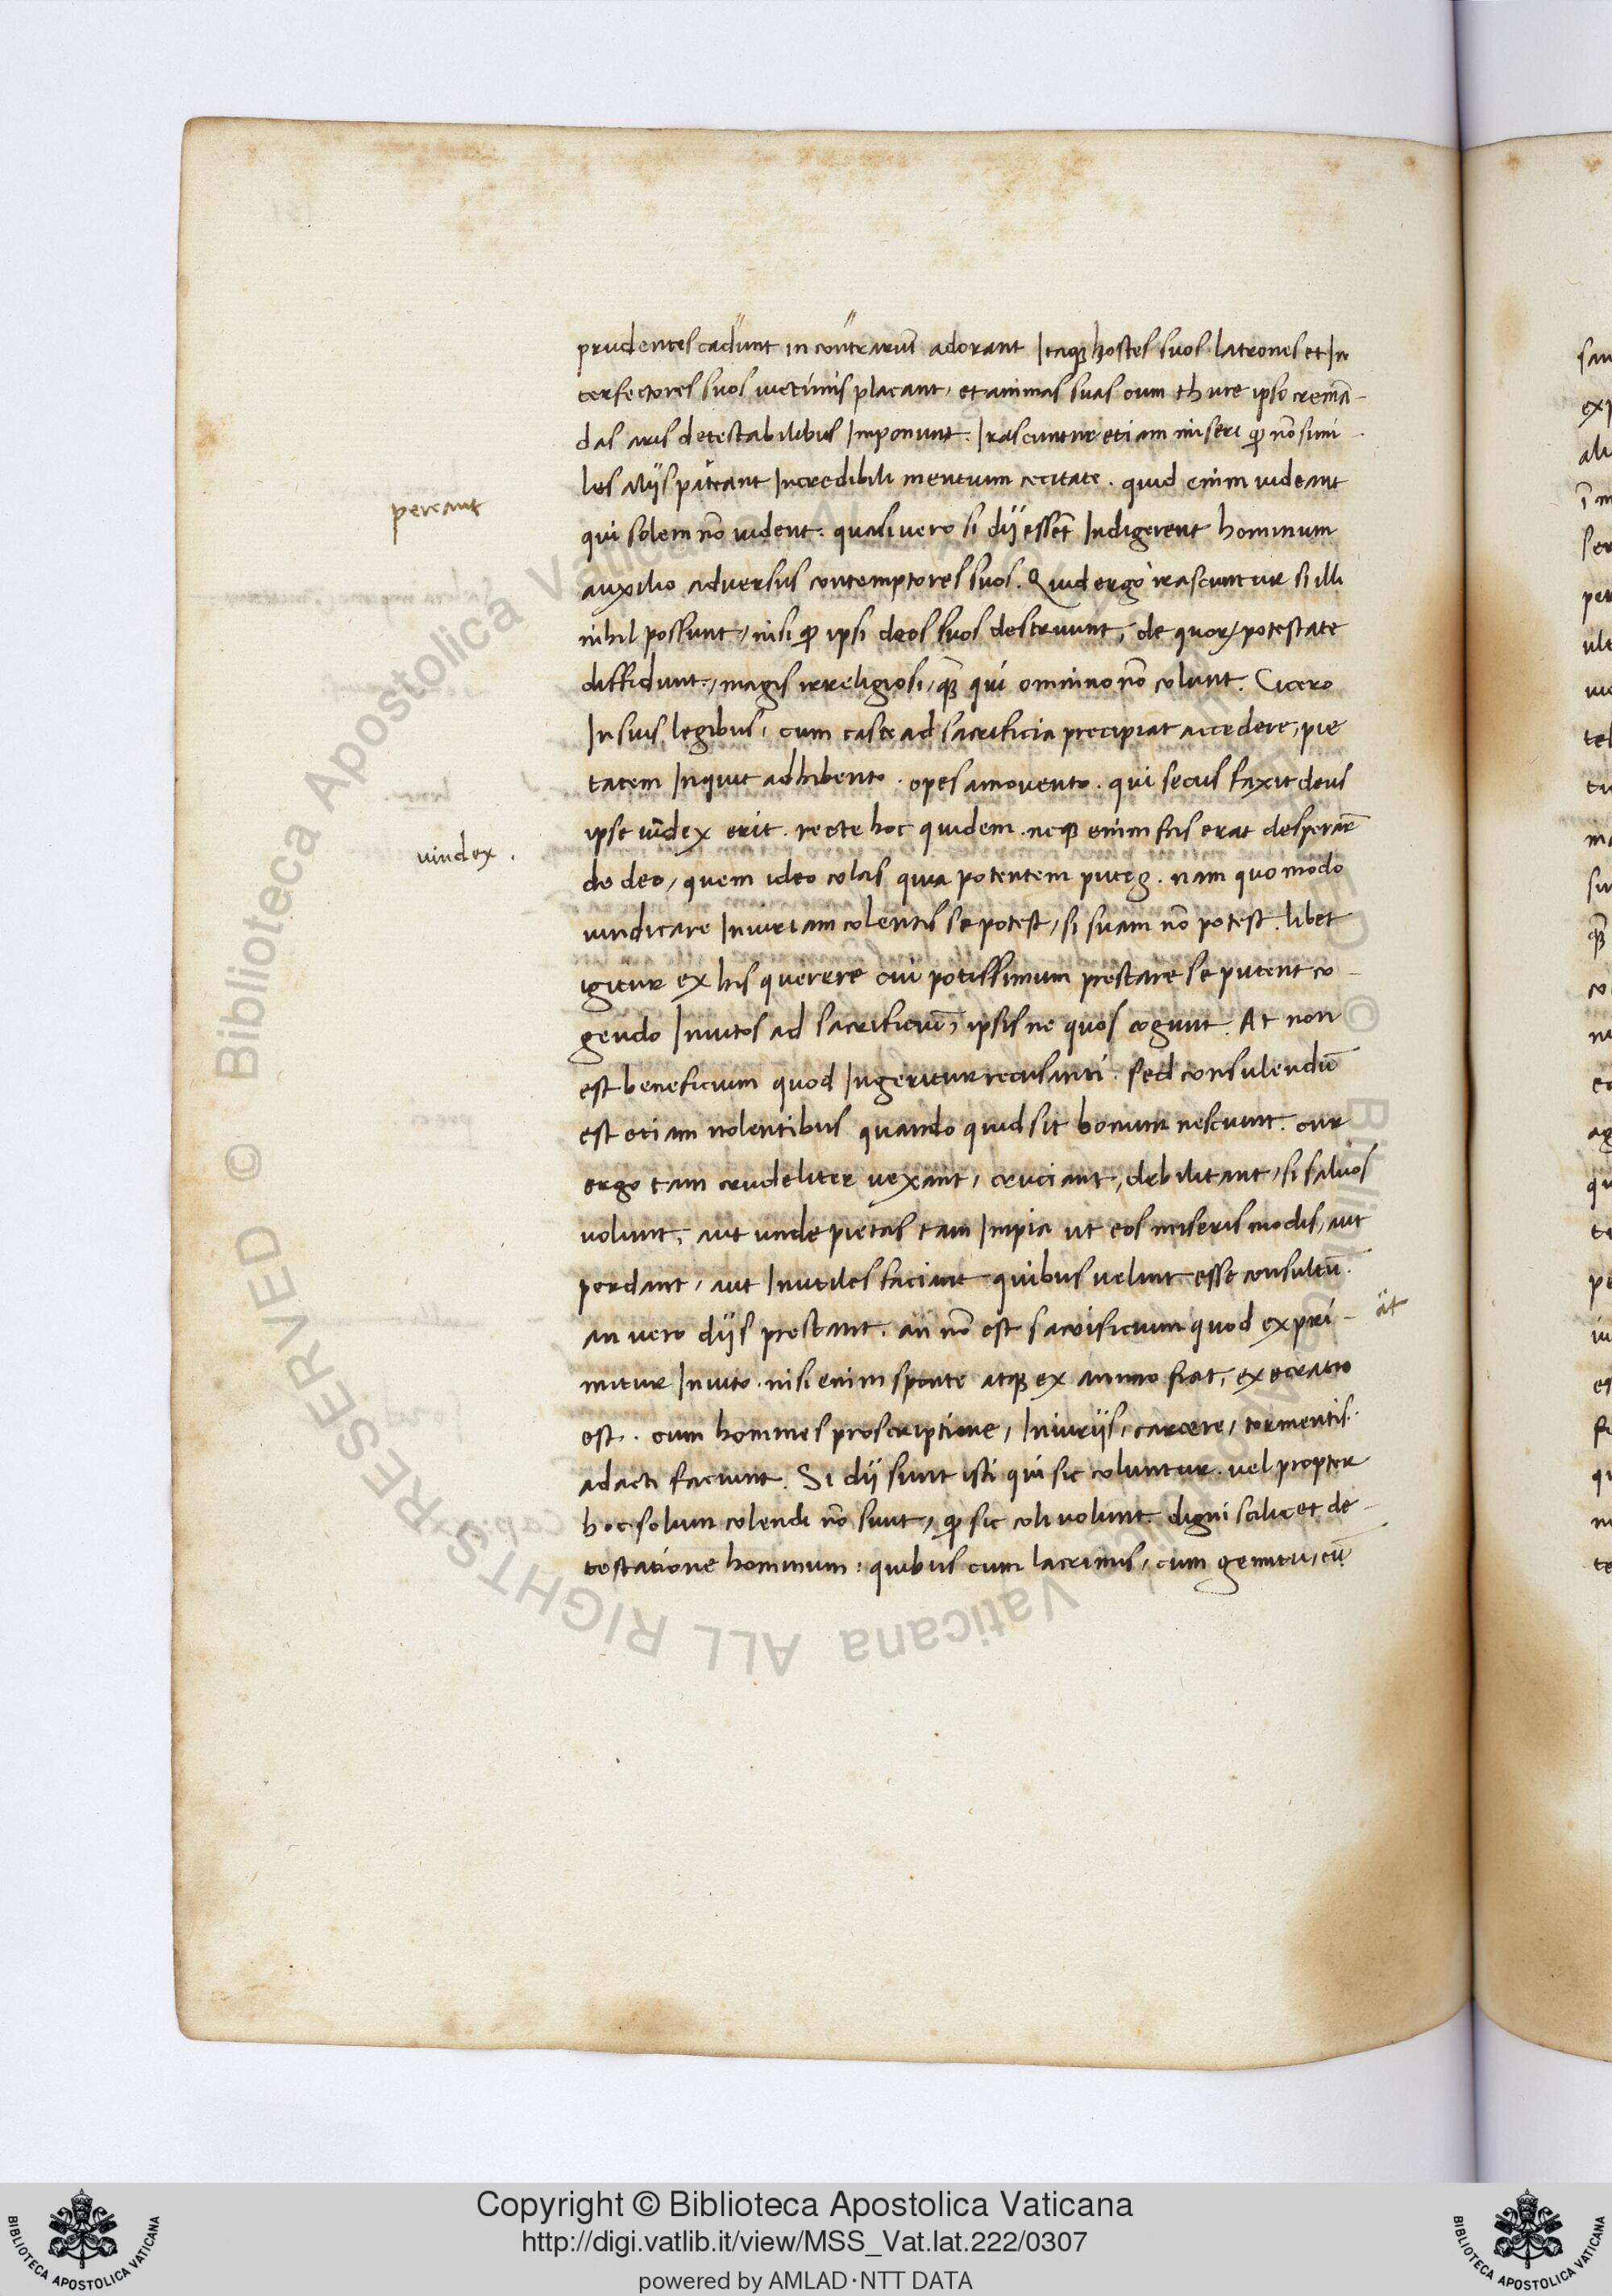 prudentes cadunt in contrariũ adorant Itaqꝫ hostes suos latrones et In
terfectores suos uictimis placant, et animas suas cum thure ipso cremã-
das aris detestabilibus Imponunt. Irascuntur etiam miseri ꝙ nõ simi-
les alijs pateant Incredibili mentium cecitate. quid enim uideant
pereant
qui solem nõ uident. quasi uero si dij essẽt Indigerent hominum
auxilio aduersus contemptores suos. Quid ergo irascuntur si illi
nihil possunt, nisi ꝙ ipsi deos suos destruunt, de quoꝝ potestate
diffidunt, magis irreligiosi, quã qui omnino nõ colunt. Cicero
In suis legibus, cum caste ad sacrificia precipiat accedere, pie
tatem Inquit adhibento. opes amouento. qui secus faxit deus
ipse uĩdex erit. recte hoc quidem. neqꝫ enim fas erat desperar̃
uindex.
de deo, quem ideo colas quia potentem putes. nam quomodo
uindicare Iniuriam colentis se potest, si suam nõ potest. libet
igitur ex his querere cui potissimum prestare se putent co-
gendo Inuitos ad sacrificiũ, ipsis ne quos cogunt. At non
est beneficium quod Ingeritur recusanti. sed consulendũ
est etiam nolentibus quando quid sit bonum nesciunt. cur
ergo tam crudeliter uexant, cruciant, debilitant, si saluos
uolunt, aut unde pietas tam Impia ut eos miseris modis, aut
perdant, aut Inutiles faciant quibus uelint esse consultũ.
an uero dijs prestant. an nõ est sacrificium quod expri-
at
mitur Inuito. nisi enim sponte atqꝫ ex animo fiat, execratio
est. cum homines proscriptione, Iniurijs, carcere, tormentis.
adacti faciunt. Si dij sunt isti qui sic coluntur. uel propter
hoc solum colendi nõ sunt, ꝙ sic coli uolunt. digni scilicet de-
testatione hominum: quibus cum lacrimis, cum gemitu, cũ
Copyright © Biblioteca Apostolica Vaticana
http://digi.vatlib.it/view/MSS_Vat.lat.222/0307
powered by AMLAD·NTT DATA